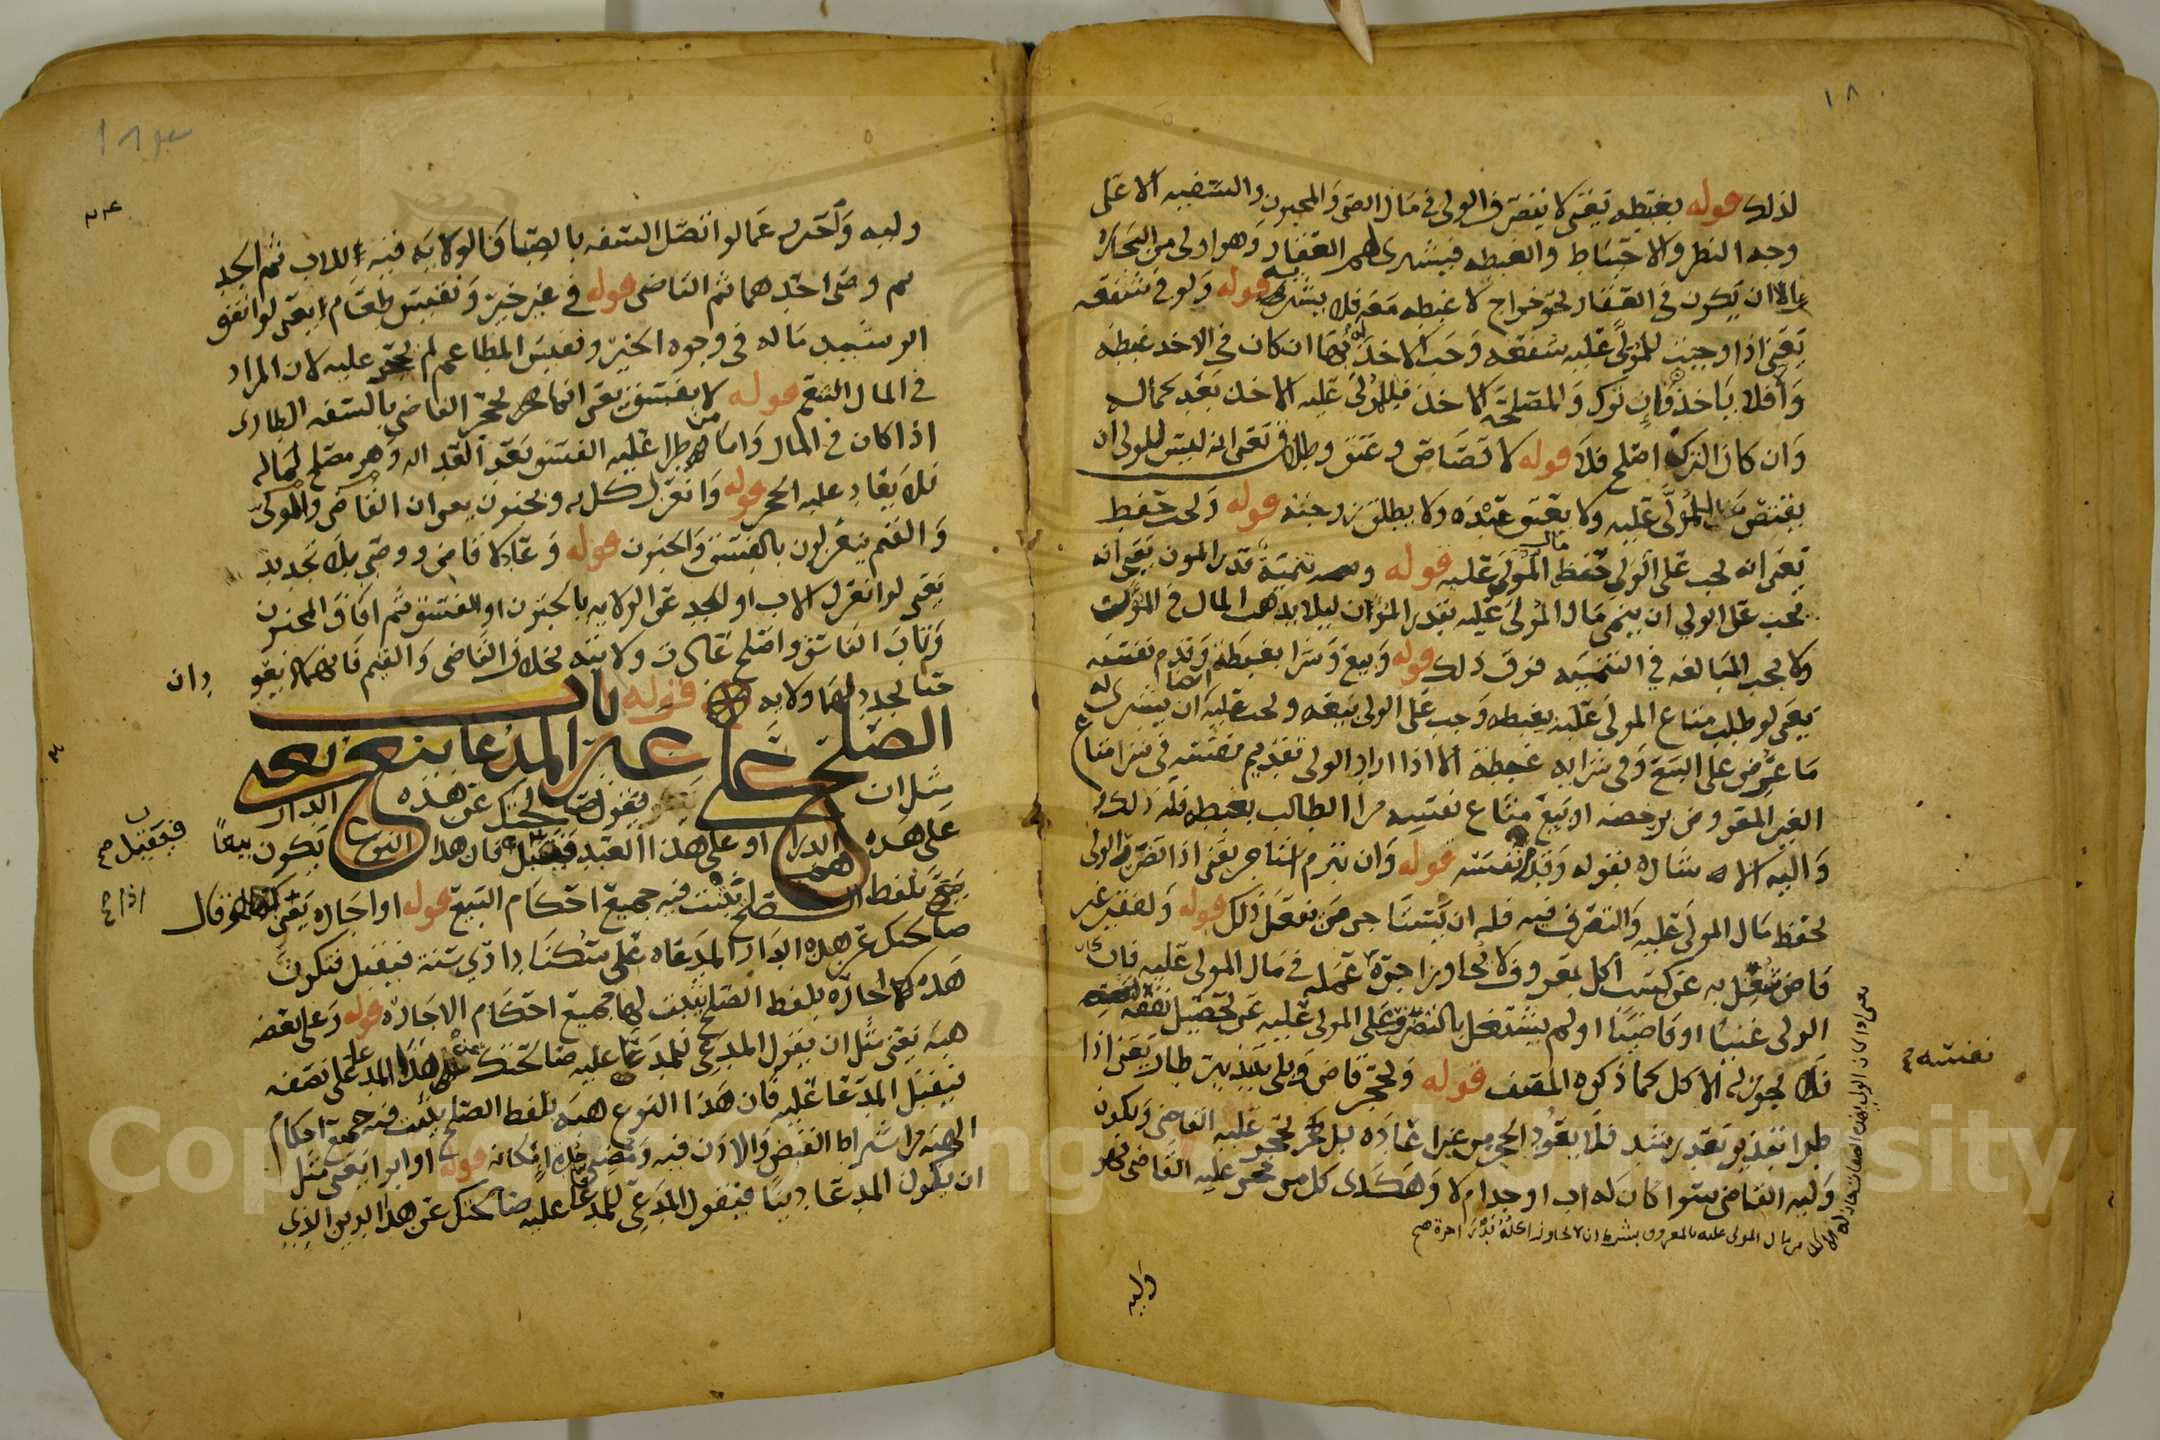 ١٨٠
لذلك قوله بغبطه يعني لا يتصرف الولي في مال الصبي والمجنون والسفيه الا على
وجه النظر والاحتياط والغبطه فيشتري لهم العقار وهو اولى من التجاره
الا ان يكون في العقار نحو خراج لا غبطه معه فلا يشتريه قوله ولو في شفعه
يعني اذا وجبت للمولى عليه شفعه وجب الاخذ له بها ان كان في الاخذ غبطه
والا فلا ياخذ فان ترك والمصلحة الاخذ فللمولى عليه الاخذ بعد كماله
وان كان الترك اصلح فلا قوله لا قصاص وعتق وطلاق يعني انه ليس للولي ان
يقتص للمولى عليه ولا يعتق عبده ولا يطلق زوجته قوله ويجب حفظ
يعني انه يجب على الولي حفظ مال المولى عليه قوله وتنميته قدر المون يعني انه
يجب على الولي ان ينمي مال المولى عليه بقدر المؤن ليلا يذهب المال في المؤن
ولا يجب المبالغه في التنميه فوق ذلك قوله وبيع وشرا بغبطة وقدم نفسه
يعني لو طلب متاع المولى عليه بغبطه وجب على الولي بيعه ويجب عليه ايضا ان يشتري له
ما عرض على البيع وفي شرايه غبطة الا اذا اراد الولي تقديم نفسه في شرا متاع
الغير المعروض برخصه او بيع متاع نفسه من الطالب بغبطه فله ذلك
واليه الاشاره بقوله وقدم نفسه قوله وان تبرم استاجر يعني اذا تضرر الولي
بحفظ مال المولى عليه والتصرف فيه فله ان يستاجر من يفعل ذلك قوله ولفقير غير
قاض شغل به عن كسب اكل بمعروف ولا يجاوز اجرة عمله في مال المولى عليه فان كان
الولي غنيا او قاضيا او لم يشتغل بالتصرف على المولى عليه عن تحصيل نفقة
نفسه صح
فلا يجوز له الاكل كما ذكره المصنف قوله وبحجر قاض ويلي تبذير طار يعني اذا
طرا تبذير بعد رشد فلا يعود الحجر من غير اعاده بل يحجر عليه القاضي ويكون
وليه القاضي سوا كان له اب او جد ام لا وهكذى كل من حجر عليه القاضي فهو
من مال المولى عليه بالمعروف بشرط ان لا يجاوز اكله قدر اجرة صح
وليه
وليه واحترز عما لو اتصل السفه بالصبا فالولايه فيه للاب ثم الجد
ثم وصي احدهما ثم القاضي قوله في غير خير ونفيس طعام يعني لو انفق
الرشيد ماله في وجوه الخير ونفيس المطاعم لم يحجر عليه لان المراد
في المال النفع قوله لا بفسق يعني انما يحجر القاضي بالسفه الطارى
اذا كان في المال واما من طرا عليه الفسق بعد العداله وهو مصلح لماله
فلا يعاد عليه الحجر قوله وانعزل كل به وبجنون يعني ان القاضي والولي
والقيم ينعزلون بالفسق والجنون قوله وعاد لا قاض ووصي بلا تجديد
يعني لو انعزل الاب او الجد عن الولايه بالجنون او الفسق ثم افاق المجنون
وتاب الفاسق واصلح عادت ولايته بخلاف القاضي والقيم فانهما لا يعود
دان
حتا يجدد لهما ولايه قوله باب
الصلح على غير المدعا بيع يعني
مثل ان يقول صالحتك عن هذه الدار
على هذه الدار او على هذا العبد فيقبل فان هذا النوع يكون بيعا
فيقبل صح
صح بلفظ الصلح يثبت فيه جميع احكام البيع قوله او اجاره يعني كما لو قال
صالحتك عن هذه الدار المدعاه على سكنا داري سنة فيقبل فتكون
هذه اجارة بلفظ الصلح يثبت لها جميع احكام الاجاره قوله وعلى بعضه
هبه يعني مثل ان يقول المدعي للمدعا عليه صالحتك عن هذا المدعا على نصفه
فيقبل المدعا عليه فان هذا النوع هبه بلفظ الصلح يثبت فيه جميع احكام
الهبه من اشتراط القبض والاذن فيه ومضي مدة امكانه قوله او ابرا يعني مثل
ان يكون المدعا دينا فيقول المدعي للمدعا عليه صالحتك عن هذا الدين الذي